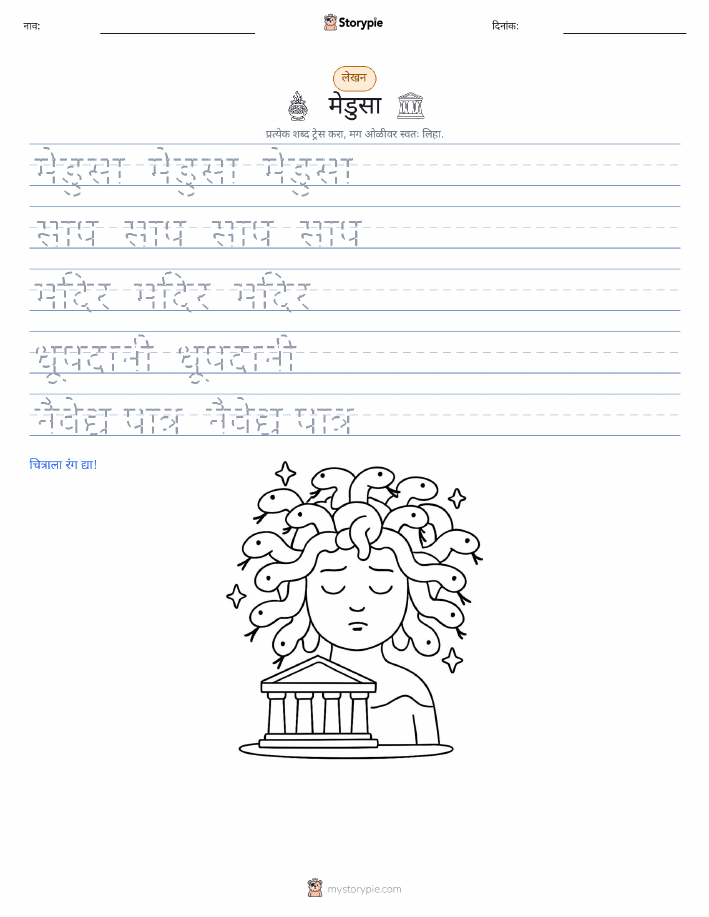 नाव:
Storypie
दिनांक:
लेखन
मेडुसा
प्रत्येक शब्द ट्रेस करा, मग ओळीवर स्वतः लिहा.
मेडुसा मेडुसा मेडुसा
साप साप साप साप
मंदिर मंदिर मंदिर
धूपदानी धूपदानी
नैवेद्य पात्र नैवेद्य पात्र
चित्राला रंग द्या!
mystorypie.com